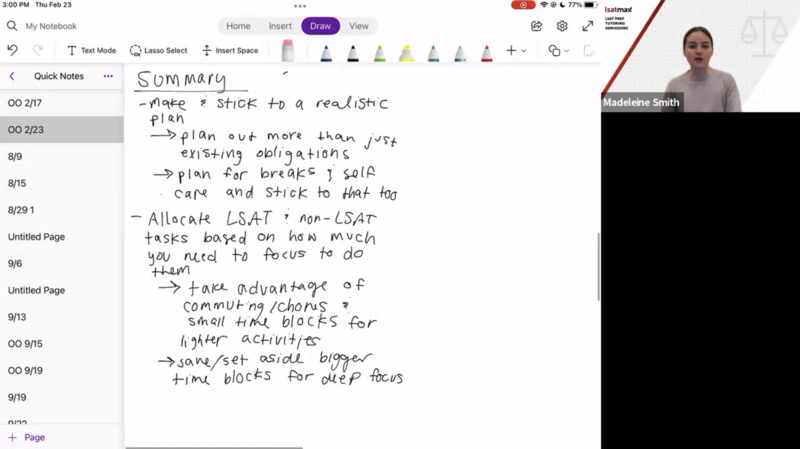 3:00 PM Thu Feb 23
77%
My Notebook
Home Insert Draw View
Text Mode
Lasso Select
Insert Space
Quick Notes
OO 2/17
OO 2/23
8/9
8/15
8/29 1
Untitled Page
9/6
Untitled Page
9/13
OO 9/15
OO 9/19
9/19
9/22
+ Page
Summary
- Make & stick to a realistic
plan
→ plan out more than just
existing obligations
→ plan for breaks & self
care and stick to that too
- Allocate LSAT & non-LSAT
tasks based on how much
you need to focus to do
them
→ take advantage of
commuting/chores &
small time blocks for
lighter activities
→ save/set aside bigger
time blocks for deep focus
lsatmax
LSAT PREP
TUTORING
ADMISSIONS
Madeleine Smith